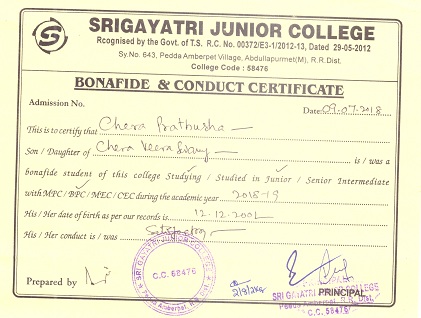 SRIGAYATRI JUNIOR COLLEGE
Rcognised by the Govt. of T.S. R.C. No. 00372/E3-1/2012-13, Dated 29-05-2012
Sy.No. 643, Pedda Amberpet Village, Abdullapurmet(M), R.R.Dist.
College Code : 58476
BONAFIDE & CONDUCT CERTIFICATE
Admission No.
Date: 09-07-2018
This is to certify that Chera Prathusha
Son / Daughter of Chera Veera Swamy is / was a
bonafide student of this college Studying / Studied in Junior / Senior Intermediate
with MPC / BPC / MEC / CEC during the academic year 2018-19
His / Her date of birth as per our records is 12-12-2001
His / Her conduct is / was
Prepared by
PRINCIPAL
SRI GAYATRI JUNIOR COLLEGE
Pedda Amberpet, R.R. Dist.
C.C. 58476
SRI GAYATRI JUNIOR COLLEGE
C.C. 58476
Pedda Amberpet, R.R. Dist.